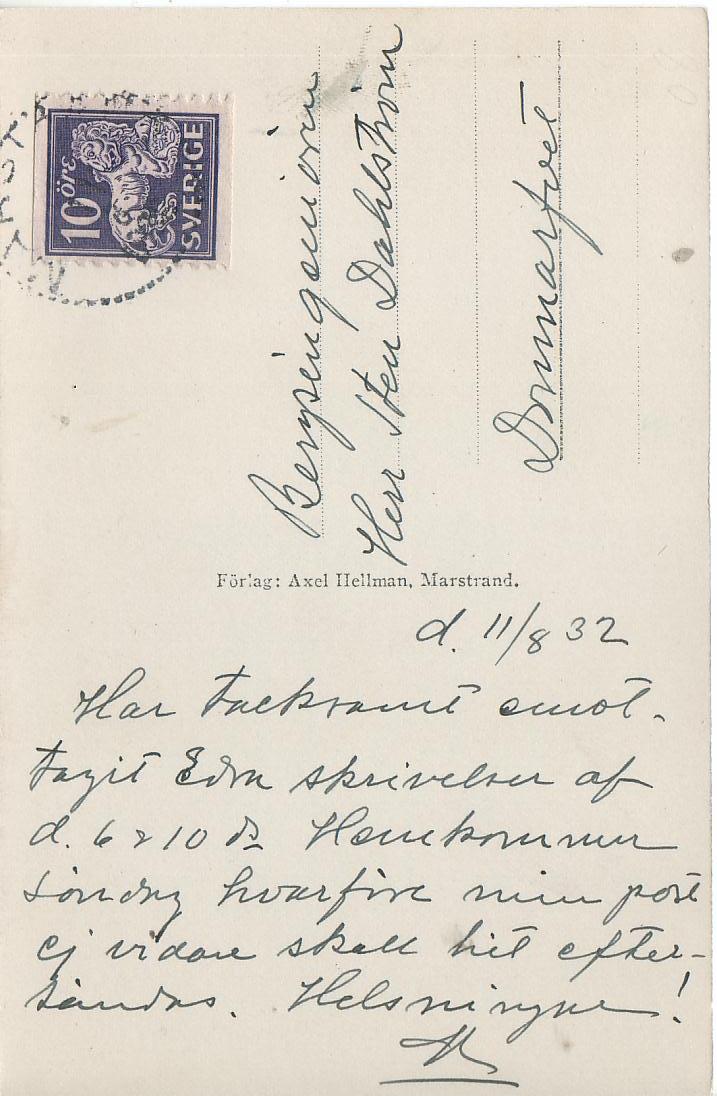 10 öre
SVERIGE
Bergsingeniören
Herr Sten Dahlström
Domnarfvet
Förlag: Axel Hellman, Marstrand.
d. 11/8 32
Har tacksamt emot-
tagit Edra skrivelser af
d. 6 & 10 ds Hemkommer
söndag hvarföre min post
ej vidare skall hit efter-
sändas. Helsningar!